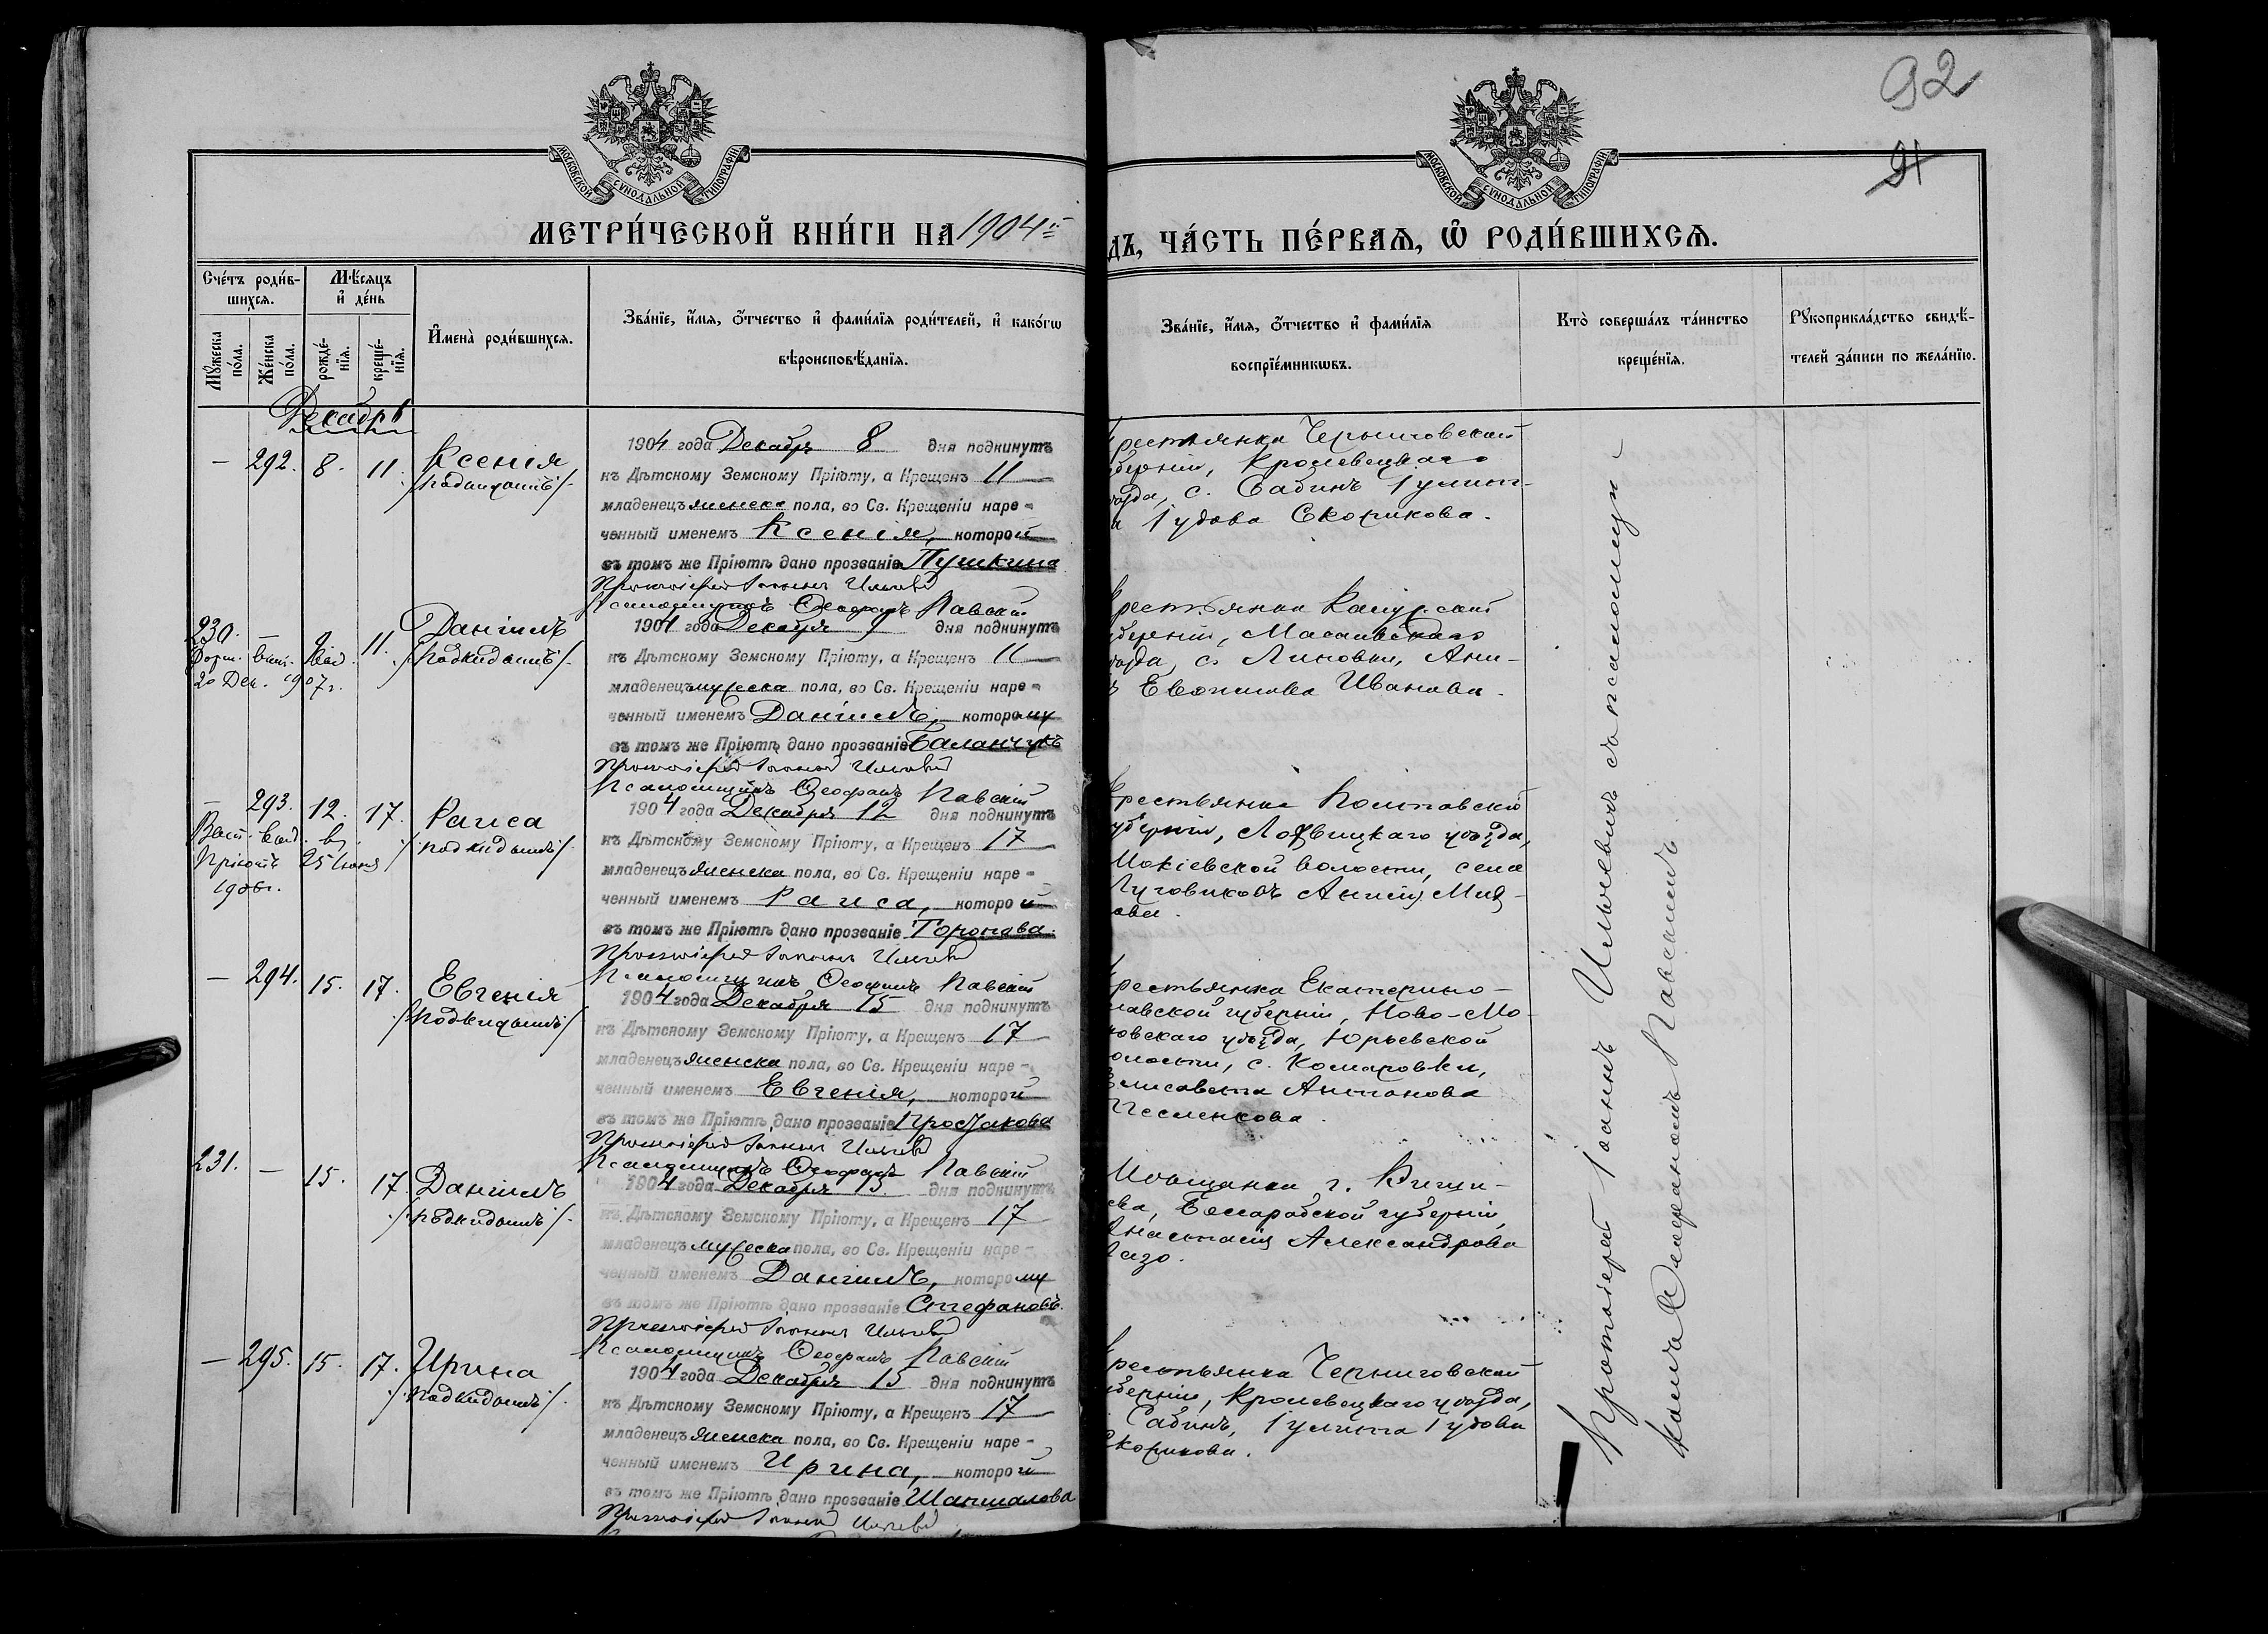 92
91
МОСКОВСКОЙ СѴНОДАЛЬНОЙ ТИПОГРАФІИ
МОСКОВСКОЙ СѴНОДАЛЬНОЙ ТИПОГРАФІИ
МЕТРИ́ЧЕСКОЙ КНИ́ГИ НА 1904й
ДЪ, ЧА́СТЬ ПЕ́РВАѦ, Ѡ҆ РОДИ́ВШИХСѦ.
Сче́тъ роди́в-
шихсѧ.
Мѣ́сѧцъ
и҆ де́нь
Мꙋ́жеска
по́ла.
Же́нска
по́ла.
рожде́-
нїѧ.
креще́-
нїѧ.
И҆мена̀ роди́вшихсѧ.
Зва́нїе, и҆́мѧ, ѻ҆́тчество и҆ фами́лїѧ роди́телей, и҆ како́гѡ
вѣроисповѣ́данїѧ.
Зва́нїе, и҆́мѧ, ѻ҆́тчество и҆ фами́лїѧ
воспрїе́мникѡвъ.
Кто̀ соверша́лъ та́инство
креще́нїѧ.
Рꙋкоприкла́дство свидѣ́-
телей за́писи по жела́нїю.
Декабрь
– 292. 8. 11. Ксенія
/подкидышъ/.
1904 года Декабря 8 дня подкинутъ
къ Дѣтскому Земскому Пріюту, а Крещенъ 11
младенецъ женска пола, во Св. Крещеніи наре-
ченный именемъ Ксенія, которой
въ томъ же Пріютѣ дано прозваніе Пушкина
Протоіерей Іоаннъ Ильчевъ
Псаломщикъ Ѳеофанъ Павскій
рестьянка Черниговской
уберніи, Кролевецкаго
уѣзда, с. Сабинъ Іулит-
а Іудова Скорикова.
230. – 9. 11. Даніилъ
/подкидышъ/.
20 Дек. 1907 г.
1904 года Декабря 9 дня подкинутъ
къ Дѣтскому Земскому Пріюту, а Крещенъ 11
младенецъ мужеска пола, во Св. Крещеніи наре-
ченный именемъ Даніилъ, которому
въ томъ же Пріютѣ дано прозваніе Баланчукъ
Протоіерей Іоаннъ Ильчевъ
Псаломщикъ Ѳеофанъ Павскій
рестьянка Калужской
уберніи, Масальскаго
уѣзда, с. Линовки,
Иванова.
– 293. 12. 17. Раиса
/подкидышъ/.
Пріютъ 25 Іюня
1906 г.
1904 года Декабря 12 дня подкинутъ
къ Дѣтскому Земскому Пріюту, а Крещенъ 17
младенецъ женска пола, во Св. Крещеніи наре-
ченный именемъ Раиса, которой
въ томъ же Пріютѣ дано прозваніе Торопова.
Протоіерей Іоаннъ Ильчевъ
Псаломщикъ Ѳеофанъ Павскій
рестьянка Полтавской
уберніи, Лохвицкаго уѣзда,
Мокіевской волости, села
Луговиковъ
– 294. 15. 17. Евгенія
/подкидышъ/
1904 года Декабря 15 дня подкинутъ
къ Дѣтскому Земскому Пріюту, а Крещенъ 17
младенецъ женска пола, во Св. Крещеніи наре-
ченный именемъ Евгенія, которой
въ томъ же Пріютѣ дано прозваніе Простакова
Протоіерей Іоаннъ Ильчевъ
Псаломщикъ Ѳеофанъ Павскій
рестьянка Екатерино-
лавской губерніи, Ново-Мо-
ковскаго уѣзда, Юрьевской
олости, с. Комаровки,
Елисавета Антонова
Чесленкова.
231. – 15. 17. Даніилъ
/подкидышъ/.
1904 года Декабря 15 дня подкинутъ
къ Дѣтскому Земскому Пріюту, а Крещенъ 17
младенецъ мужеска пола, во Св. Крещеніи наре-
ченный именемъ Даніилъ, которому
въ томъ же Пріютѣ дано прозваніе Стефановъ.
Протоіерей Іоаннъ Ильчевъ
Псаломщикъ Ѳеофанъ Павскій
Мѣщанка г. Киши-
ева, Бессарабской губерніи,
Анастасія Александрова
Лазо.
– 295. 15. 17. Ирина
/подкидышъ/.
1904 года Декабря 15 дня подкинутъ
къ Дѣтскому Земскому Пріюту, а Крещенъ 17
младенецъ женска пола, во Св. Крещеніи наре-
ченный именемъ Ирина, которой
въ томъ же Пріютѣ дано прозваніе Шапшалова
Протоіерей Іоаннъ Ильчевъ
рестьянка Черниговской
уберніи, Кролевецкаго уѣзда,
Сабинъ, Іулита Іудова
Скорикова.
Протоіерей Іоаннъ Ильчевъ съ псаломщи-
комъ Ѳеофаномъ Павскимъ.